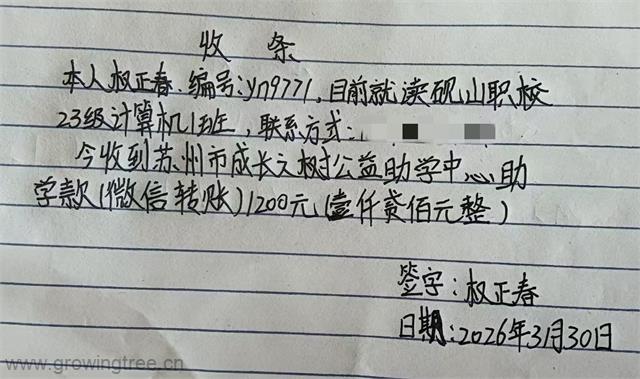 收 条
本人权正春.编号:yn9771,目前就读砚山职校
23级计算机1班,联系方式:
今收到苏州市成长之树公益助学中心助
学款(微信转账)1200元(壹仟贰佰元整)
签字:权正春
日期:2026年3月30日
www.growingtree.cn